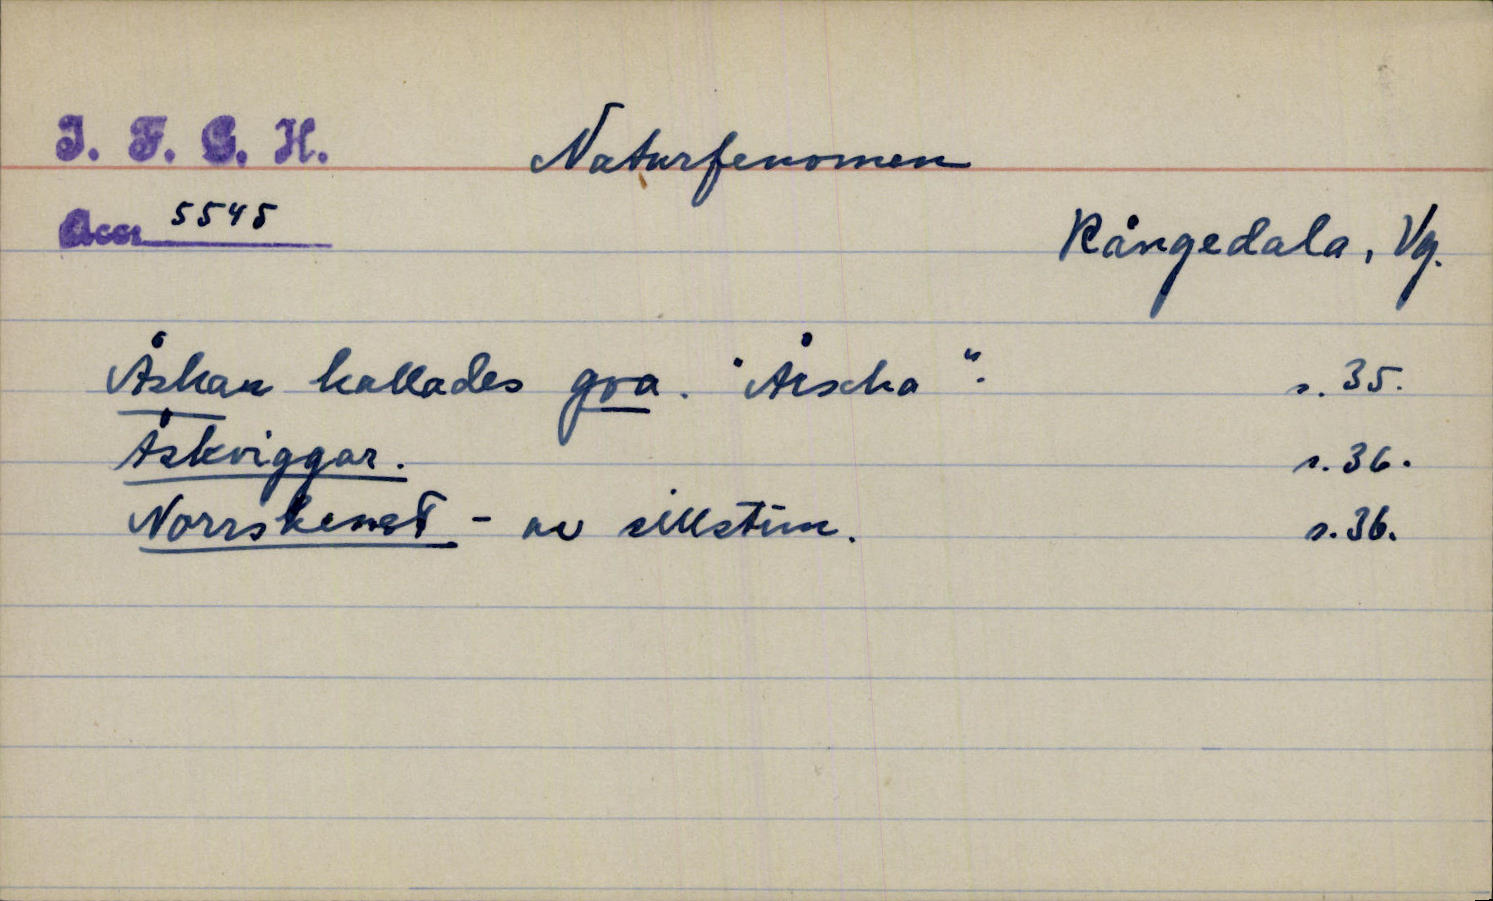 I. F. G. H.
Naturfenomen
Acc. 5545
Rångedala, Vg.
Åskan kallades goa. "Åscha". s. 35.
Åskviggar. s. 36.
Norrskenet - av sillstim. s. 36.